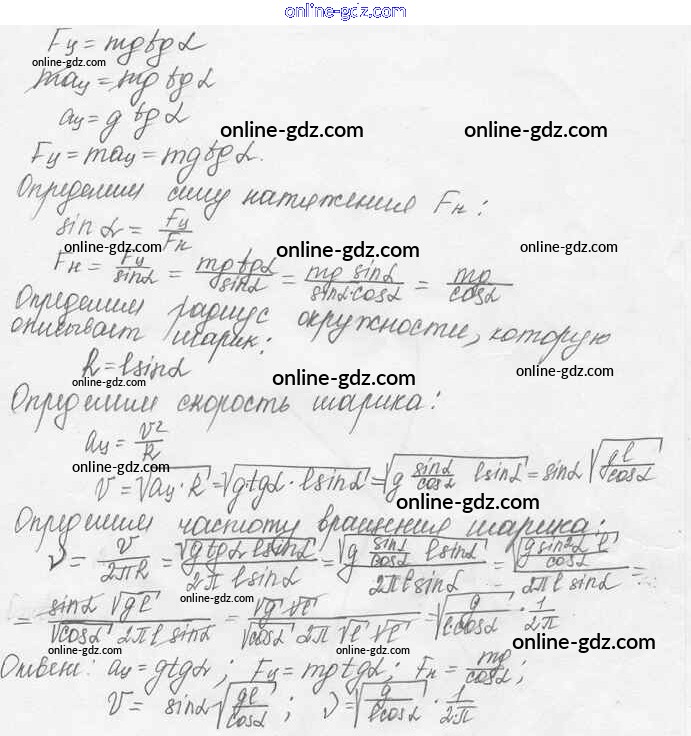 online-gdz.com
Fц = mg tg α
online-gdz.com
maц = mg tg α
aц = g tg α
online-gdz.com online-gdz.com
Fц = maц = mg tg α.
Определим силу натяжения Fн:
sin α = Fц/Fн
online-gdz.com online-gdz.com online-gdz.com
Fн = Fц/sin α = mg tg α/sin α = mg sin α/sin α·cos α = mg/cos α
online-gdz.com
Определим радиус окружности, которую
описывает шарик:
R = l sin α
online-gdz.com online-gdz.com online-gdz.com
Определим скорость шарика:
aц = v²/R
online-gdz.com
v = √(aц·R) = √(g tg α · l sin α) = √(g sin α/cos α l sin α) = sin α √(gl/cos α)
online-gdz.com
Определим частоту вращения шарика:
ν = v/2πR = √(g tg α l sin α)/2π l sin α = √(g sin α/cos α l sin α)/2π l sin α = √(g sin²α l/cos α)/2π l sin α =
online-gdz.com
= sin α √gl/√cos α 2π l sin α = √g √l/√cos α 2π √l √l = √(g/l cos α) · 1/2π
online-gdz.com
Ответ: aц = g tg α; Fц = mg tg α; Fн = mg/cos α;
online-gdz.com
v = sin α √(gl/cos α); ν = √(g/l cos α) · 1/2π